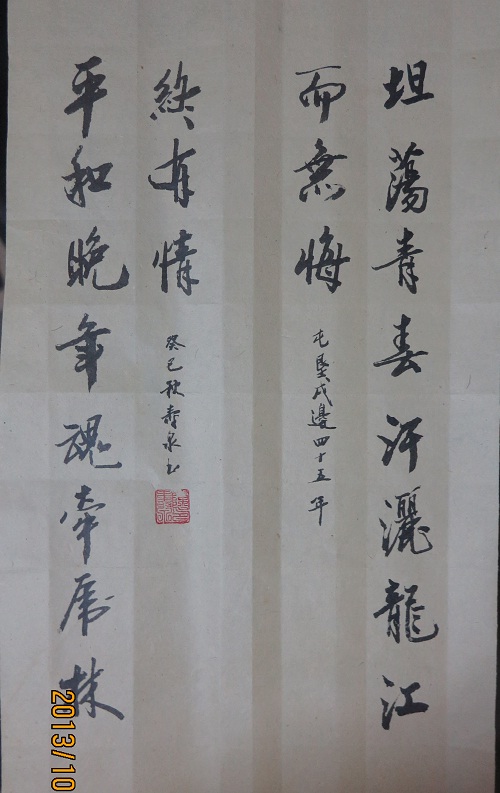 坦蕩青春汗灑龍江
而無悔
屯墾戍邊四十五年
平和晚年魂牽虎林
終有情
癸巳秋壽泉书
2013/10